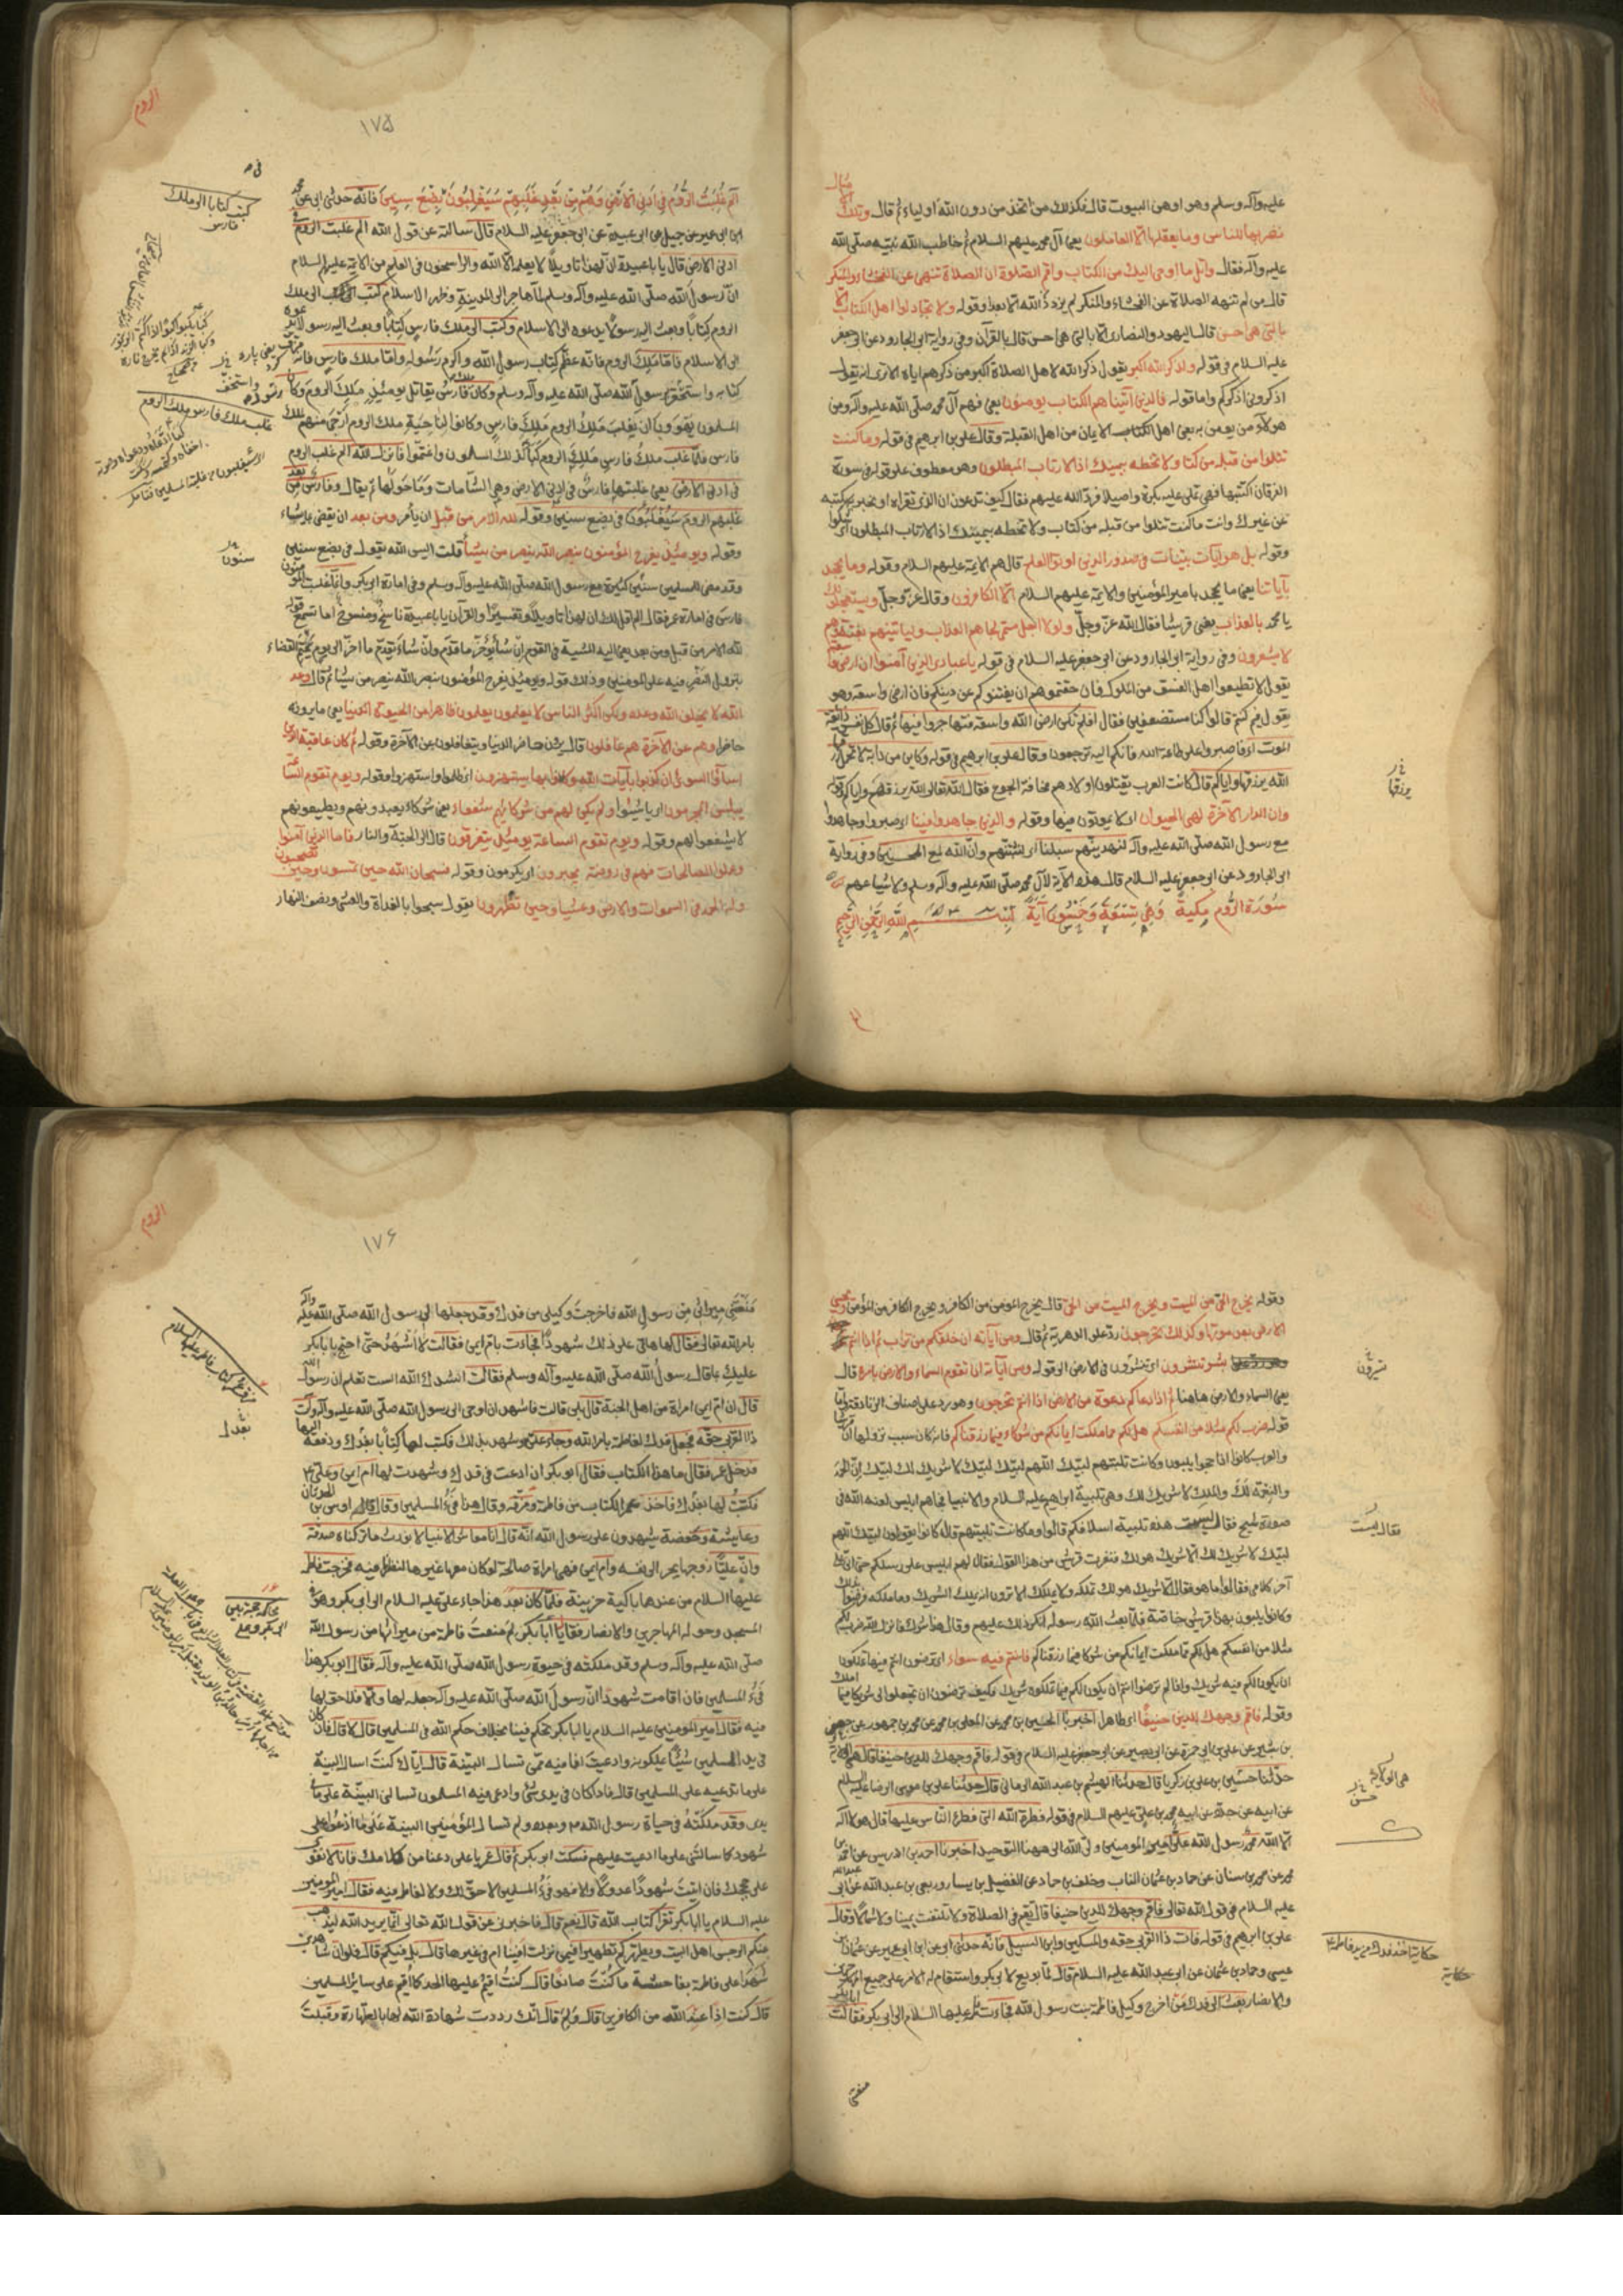 عليه وآله وسلم وهو اوهن البيوت قال فكذلك من اتخذ من دون الله اولياء ثم قال وتلك الامثال
نضربها للناس وما يعقلها الا العالمون يعنى آل محمد عليهم السلام ثم خاطب الله نبيه صلى الله
عليه وآله فقال واتل ما اوحى اليك من الكتاب واقم الصلوة ان الصلاة تنهى عن الفحشاء والمنكر
قال من لم تنهه الصلاة عن الفحشاء والمنكر لم يزدد من الله الا بعدا وقوله ولا تجادلوا اهل الكتاب الا
بالتى هى احسن قال اليهود والنصارى الا بالتى هى احسن قال بالقرآن وفى رواية ابى الجارود عن ابى جعفر
عليه السلام فى قوله ولذكر الله اكبر يقول ذكر الله لاهل الصلاة اكبر من ذكرهم اياه الا ترى انه يقول
اذكرونى اذكركم واما قوله فالذين آتيناهم الكتاب يومنون به يعنى فهم آل محمد صلى الله عليه وآله ومن
هولاء من يومن به يعنى اهل الكتاب الايمان من اهل القبلة وقال على بن ابرهيم فى قوله وما كنت
تتلوا من قبله من كتاب ولا تخطه بيمينك اذا لارتاب المبطلون وهو معطوف على قوله فى سورة
الفرقان اكتتبها فهى تملى عليه بكرة واصيلا فرد الله عليهم فقال كيف تدعون ان الذى تقراه او تخبر به تكتبه
عن غيرك وانت ما كنت تتلوا من قبله من كتاب ولا تخطه بيمينك اذا لارتاب المبطلون اى شكوا
وقوله بل هو آيات بينات فى صدور الذين اوتوا العلم قال هم الائمة عليهم السلام وقوله وما يجحد
بآياتنا يعنى ما يجحد بامير المؤمنين والائمة عليهم السلام الا الكافرون وقال عز وجل ويستعجلونك
يا محمد بالعذاب يعنى قريشا فقال الله عز وجل ولولا اجل مسمى لجاءهم العذاب ولياتينهم بغتة وهم
لا يشعرون وفى رواية ابى الجارود عن ابى جعفر عليه السلام فى قوله يا عبادى الذين آمنوا ان ارضى واسعة
يقول لا تطيعوا اهل الفسق من الملوك فان خفتموهم ان يفتنوكم عن دينكم فان ارضى واسعة وهو
يقول فيم كنتم قالوا كنا مستضعفين فقال افلم تكن ارض الله واسعة فتهاجروا فيها ثم قال كل نفس ذائقة
الموت اى فاصبروا على طاعة الله فانكم اليه ترجعون وقال على بن ابرهيم فى قوله وكاين من دابة لا تحمل رزقها
الله يرزقها واياكم قال كانت العرب يقتلون اولادهم مخافة الجوع فقال الله تعالى الله يرزقهم واياكم وقوله
وان الدار الاخرة لهى الحيوان اى لا يموتون فيها وقوله والذين جاهدوا فينا اى صبروا وجاهدوا
مع رسول الله صلى الله عليه وآله لنهدينهم سبلنا اى لنثبتنهم وان الله لمع المحسنين وفى رواية
ابى الجارود عن ابى جعفر عليه السلام قال هذه الآية لآل محمد صلى الله عليه وآله وسلم ولاشياعهم
سورة الروم مكية وهى تسعة وخمسون آية بسم الله الرحمن الرحيم
يرزقها
الروم
١٧٥
الم غلبت الروم فى ادنى الارض وهم من بعد غلبهم سيغلبون فى بضع سنين فانه حدثنى ابى عن محمد
ابن ابى عمير عن جميل عن ابى عبيدة عن ابى جعفر عليه السلام قال سالته عن قول الله الم غلبت الروم فى
ادنى الارض قال يا با عبيدة ان لهذا تاويلا لا يعلمه الا الله والراسخون فى العلم من الائمة عليهم السلام
ان رسول الله صلى الله عليه وآله وسلم لما هاجر الى المدينة وظهر الاسلام كتب الى ملك
الروم كتابا وبعث اليه رسولا يدعوه الى الاسلام وكتب الى ملك فارس كتابا وبعث اليه رسولا يدعوه
الى الاسلام فاما ملك الروم فانه عظم كتاب رسول الله واكرم رسوله واما ملك فارس فانه
كتابه واستخف برسول الله صلى الله عليه وآله وسلم وكان فارس يقاتل يومئذ ملك الروم وكان
المسلمون يهوون ان يغلب ملك الروم ملك فارس وكانوا لناحية ملك الروم ارجى منهم لملك
فارس فلما غلب ملك فارس ملك الروم بكا لذلك المسلمون واغتموا فانزل الله الم غلبت الروم
فى ادنى الارض يعنى غلبتها فارس فى ادنى الارض وهى الشامات وما حولها ثم يقال وفارس من بعد
غلبهم الروم سيغلبون فى بضع سنين وقوله لله الامر من قبل ان يأمر ومن بعد ان يقضى بما يشاء
وقوله ويومئذ يفرح المؤمنون بنصر الله ينصر من يشأ قلت اليس الله يقول فى بضع سنين
وقد مضى للمسلمين سنين كثيرة مع رسول الله صلى الله عليه وآله وسلم وفى امارة ابى بكر وانما غلبت المؤمنون
فارس فى امارة عمر فقال الم اقل لك ان لهذا تاويلا وتفسيرا والقرآن يا با عبيدة ناسخ ومنسوخ اما تسمع قوله
لله الامر من قبل ومن بعد يعنى اليه المشية فى القول ان شأ يؤخر ما قدم وان شاء يقدم ما اخر الى يوم يحتم القضاء
بنزول النصر فيه على المومنين وذلك قوله ويومئذ يفرح المؤمنون بنصر الله ينصر من يشأ ثم قال وعد
الله لا يخلف الله وعده ولكن اكثر الناس لا يعلمون يعلمون ظاهرا من الحيوة الدنيا يعنى ما يرونه
حاضرا وهم عن الآخرة هم غافلون قال يرون حاضر الدنيا ويتغافلون عن الآخرة وقوله ثم كان عاقبة الذين
اساؤا السوئى ان كذبوا بآيات الله وكانوا بها يستهزون اى ظلموا واستهزوا وقوله ويوم تقوم الساعة
يبلس المجرمون اى يائسوا ولم يكن لهم من شركائهم شفعاء يعنى شركاء يعبدونهم ويطيعونهم
لا يشفعوا لهم وقوله ويوم تقوم الساعة يومئذ يتفرقون قال الى الجنة والنار فاما الذين آمنوا
وعملوا الصالحات فهم فى روضة يحبرون اى يكرمون وقوله فسبحان الله حين تمسون وحين تصبحون
وله الحمد فى السموات والارض وعشيا وحين تظهرون يقول سبحوا بالغداة والعشى ونصف النهار
كتب كتابا الى ملك فارس
غلب ملك فارس ملك الروم
سنون
وقوله يخرج الحى من الميت ويخرج الميت من الحى قال يخرج المومن من الكافر ويخرج الكافر من المؤمن ويحيى
الارض بعد موتها وكذلك تخرجون رد على الدهرية ثم قال ومن آياته ان خلقكم من تراب ثم اذا انتم
بشر تنتشرون اى تنشرون فى الارض الى قوله ومن آياته ان تقوم السماء والارض بامره قال
يعنى السماء والارض هاهنا ثم اذا دعاكم دعوة من الارض اذا انتم تخرجون وهو رد على اصناف الزنادقة واما
قوله ضرب لكم مثلا من انفسكم هل لكم مما ملكت ايمانكم من شركاء فيما رزقناكم فانه كان سبب نزولها ان قريشا
والعرب كانوا اذا حجوا يلبون وكانت تلبيتهم لبيك اللهم لبيك لبيك لا شريك لك لبيك ان الحمد
والنعمة لك والملك لا شريك لك وهى تلبية ابراهيم عليه السلام والانبيا فجاءهم ابليس لعنه الله فى
صورة شيخ فقال ليست هذه تلبية اسلافكم قالوا وما كانت تلبيتهم قال كانوا يقولون لبيك اللهم
لبيك لا شريك لك الا شريك هو لك فنفرت قريش من هذا القول فقال لهم ابليس على رسلكم حتى آتى على
آخر كلامى فقالوا ما هو فقال الا شريك هو لك تملكه وما يملك الا ترون انه يملك الشريك وما ملكه فرضوا بذلك
وكانوا يلبون بهذا قريش خاصة فلما بعث الله رسوله انكر ذلك عليهم وقال هذا شرك فانزل الله ضرب لكم
مثلا من انفسكم هل لكم مما ملكت ايمانكم من شركا فيما رزقناكم فانتم فيه سواء اى ترضون انتم فيما تملكون
ان يكون لكم فيه شريك واذا لم ترضوا انتم ان يكون لكم فيما تملكون شريك فكيف ترضون ان تجعلوا لى شريكا فيما املك
وقوله فاقم وجهك للدين حنيفا اى طاهرا اخبرنا الحسين بن محمد عن المعلى بن محمد عن محمد بن جمهور عن جعفر
بن بشير عن على بن ابى حمزة عن ابى بصير عن ابى جعفر عليه السلام فى قوله فاقم وجهك للدين حنيفا قال هى الولاية
حدثنا حسين بن على بن زكريا قال حدثنا الهيثم بن عبد الله الرمانى قال حدثنا على بن موسى الرضا عليه السلام
عن ابيه عن جده عن ابيه محمد بن على عليهم السلام فى قوله فطرة الله التى فطر الناس عليها قال هو لا اله
الا الله محمد رسول الله على امير المومنين ولى الله الى ههنا التوحيد اخبرنا احمد بن ادريس عن احمد بن
محمد عن محمد بن سنان عن حماد بن عثمان الناب وخلف بن حماد عن الفضيل بن يسار وربعى بن عبد الله عن ابى عبد الله
عليه السلام فى قول الله تعالى فاقم وجهك للدين حنيفا قال يقيم فى الصلاة ولا يلتفت يمينا ولا شمالا وقال
على بن ابرهيم فى قوله فات ذا القربى حقه والمسكين وابن السبيل فانه حدثنى ابى عن ابن ابى عمير عن عثمان بن
عيسى وحماد بن عثمان عن ابى عبد الله عليه السلام قال لما بويع لابى بكر واستقام له الامر على جميع المهاجرين
والانصار بعث الى فدك من اخرج وكيل فاطمة بنت رسول الله فجاءت فاطمة عليها السلام الى ابى بكر فقالت يا ابا بكر
منعتنى
فقال ليست
هى الولاية
حكاية
الروم
١٧۶
منعتنى ميراثى من رسول الله فاخرجت وكيلى من فدك وقد جعلها لى رسول الله صلى الله عليه وآله
بامر الله تعالى فقال لها هاتى على ذلك شهودا فجاءت بام ايمن فقالت لا اشهد حتى احتج يا با بكر
عليك بما قال رسول الله صلى الله عليه وآله وسلم فقالت انشدك الله الست تعلم ان رسول الله
قال ان ام ايمن امراة من اهل الجنة قال بلى قالت فاشهد ان الله اوحى الى رسول الله صلى الله عليه وآله وآت
ذا القربى حقه فجعل فدك لفاطمة بامر الله وجاء على فشهد بذلك فكتب لها كتابا بفدك ودفعه اليها
فدخل عمر فقال ما هذا الكتاب فقال ابو بكر ان ادعت فى فدك وشهدت لها ام ايمن وعلى
فكتبت لها بفدك فاخذ عمر الكتاب من فاطمة ومزقه وقال هذا فئ المسلمين وقال اوس بن الحدثان
وعايشة وحفصة يشهدون على رسول الله انه قال انا معاشر الانبيا لا نورث ما تركناه صدقة
وان عليا زوجها يجر الى نفسه وام ايمن فهى امراة صالحة لو كان معها غيرها لنظرنا فيه فخرجت فاطمة
عليها السلام من عندهما باكية حزينة فلما كان بعد هذا جاء على عليه السلام الى ابى بكر وهو فى
المسجد وحوله المهاجرين والانصار فقال يا ابا بكر لم منعت فاطمة من ميراثها من رسول الله
صلى الله عليه وآله وسلم وقد ملكته فى حيوة رسول الله صلى الله عليه وآله فقال ابو بكر هذا
فئ المسلمين فان اقامت شهودا ان رسول الله صلى الله عليه وآله جعله لها والا فلا حق لها
فيه فقال امير المومنين عليه السلام يا ابا بكر تحكم فينا بخلاف حكم الله فى المسلمين قال لا قال فان كان
فى يد المسلمين شيئا يملكونه وادعيت انا فيه ممن تسال البينة قال اياك كنت اسال البينة
على ما تدعيه على المسلمين قال فاذا كان فى يدى شئ وادعى فيه المسلمون تسالنى البينة على ما فى
يدى وقد ملكته فى حياة رسول الله وبعده ولم تسال المؤمنين البينة على ما ادعوا على
شهودا كما سالتنى على ما ادعيت عليهم فسكت ابو بكر ثم قال عمر يا على دعنا من كلامك فانا لا نقوى
على حججك فان اتيت شهودا عدولا والا فهو فئ المسلمين لا حق لك ولا لفاطمة فيه فقال امير المومنين
عليه السلام يا ابا بكر تقرا كتاب الله قال نعم قال فاخبرنى عن قول الله تعالى انما يريد الله ليذهب
عنكم الرجس اهل البيت ويطهركم تطهيرا فيمن نزلت افينا ام فى غيرنا قال بل فيكم قال فلو ان شاهدين
شهدا على فاطمة بفاحشة ما كنت صانعا قال كنت اقيم عليها الحد كما اقيم على سائر المسلمين
قال كنت اذا عند الله من الكافرين قال ولم قال لانك رددت شهادة الله لها بالطهارة وقبلت